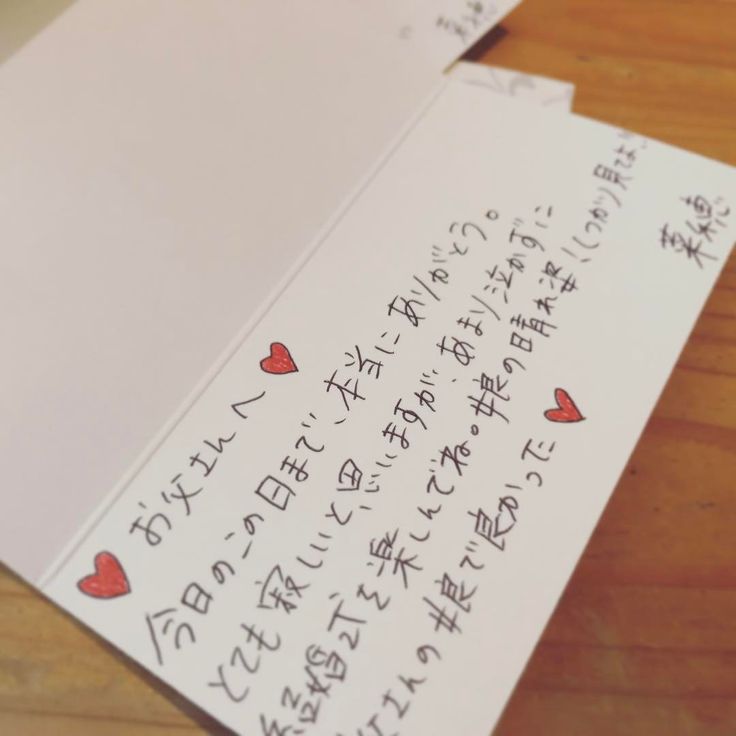 お父さんへ
今日のこの日まで、本当にありがとう。
とても寂しいと思いますが、あまり泣かずに
結婚式を楽しんでね。娘の晴れ姿、しっかり見てよ!!
父さんの娘で良かった
菜穂
菜穂